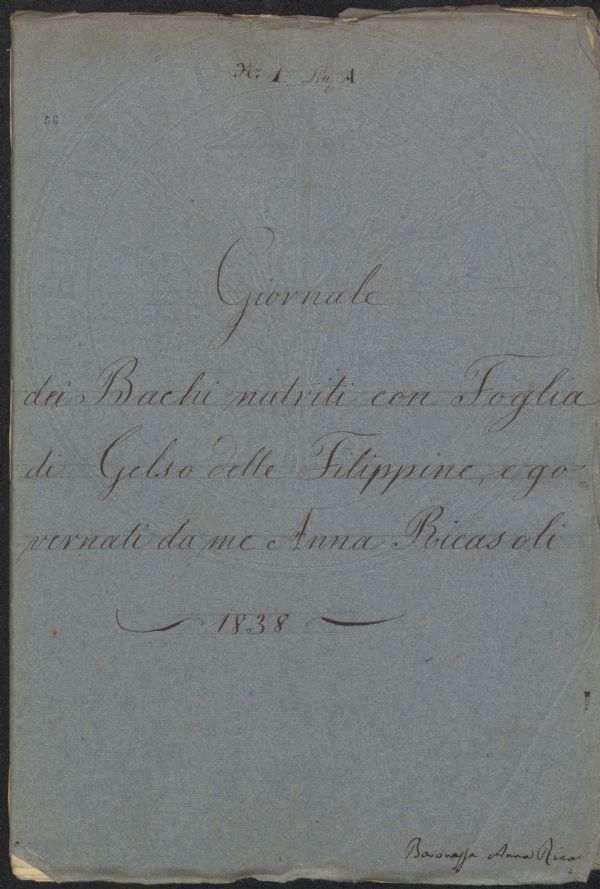 N. 1. A
56
Giornale
dei Bachi nutriti con Foglia
di Gelso delle Filippine, e go=
vernati da me Anna Ricasoli
1838
Baronessa Anna Rica